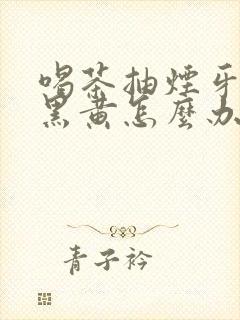 喝茶抽煙牙
黑黄怎麼办
青子衿